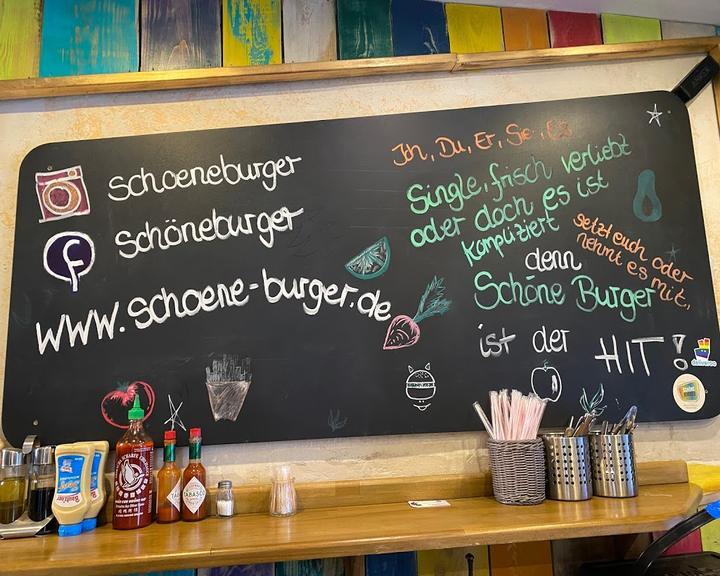 schoeneburger
schöneburger
www.schoene-burger.de
Ich, Du, Er, Sie, Es
Single, frisch verliebt
oder doch es ist
kompliziert
setzt euch oder
nehmt es mit,
denn
Schöne Burger
ist der HIT!
TABASCO